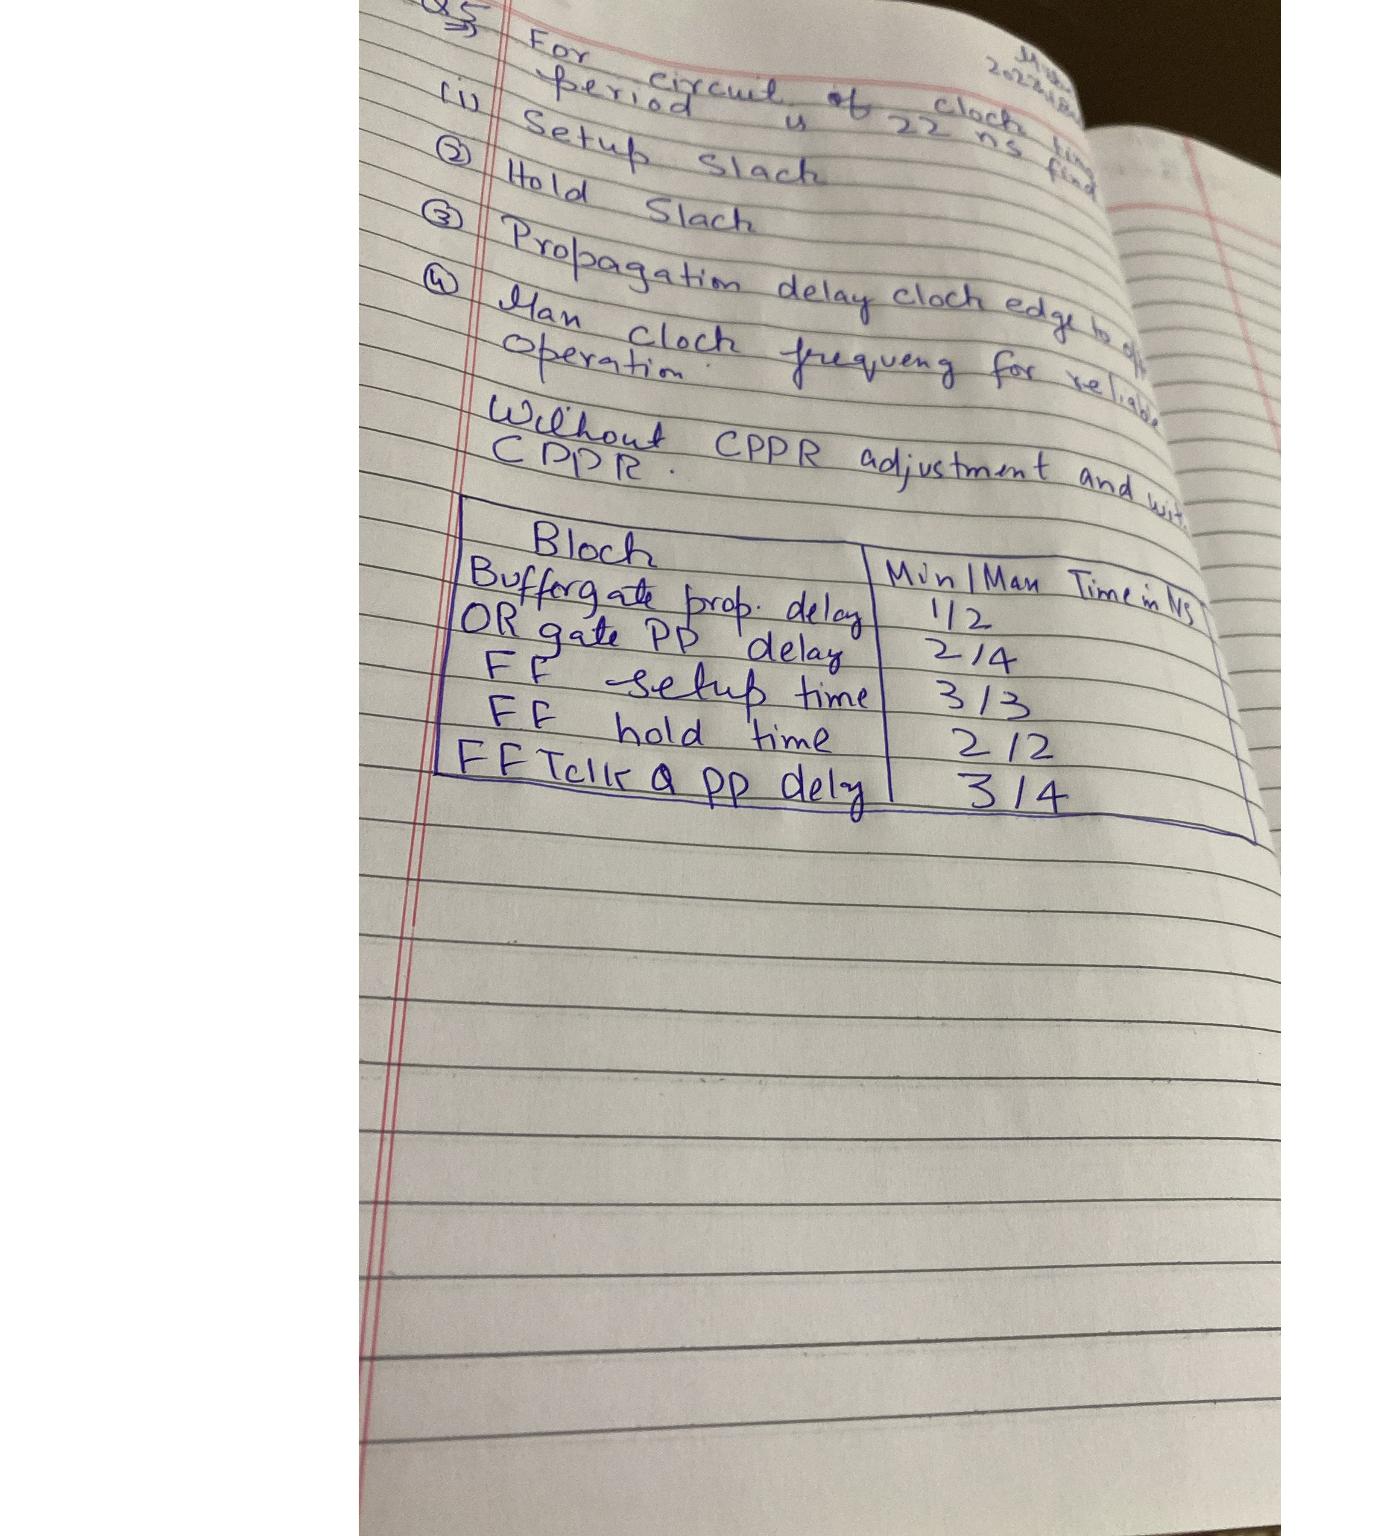 Q5
For circuit of clock time
period is 22 ns find
(i) Setup Slack
(2) Hold Slack
(3) Propagation delay clock edge to o/p
(4) Max Clock frequency for reliable
operation.
Without CPPR adjustment and with
CPPR.
Block | Min/Max Time in NS
Buffergate prop. delay | 1/2
OR gate PP delay | 2/4
FF setup time | 3/3
FF hold time | 2/2
FF Tclk Q PP dely | 3/4